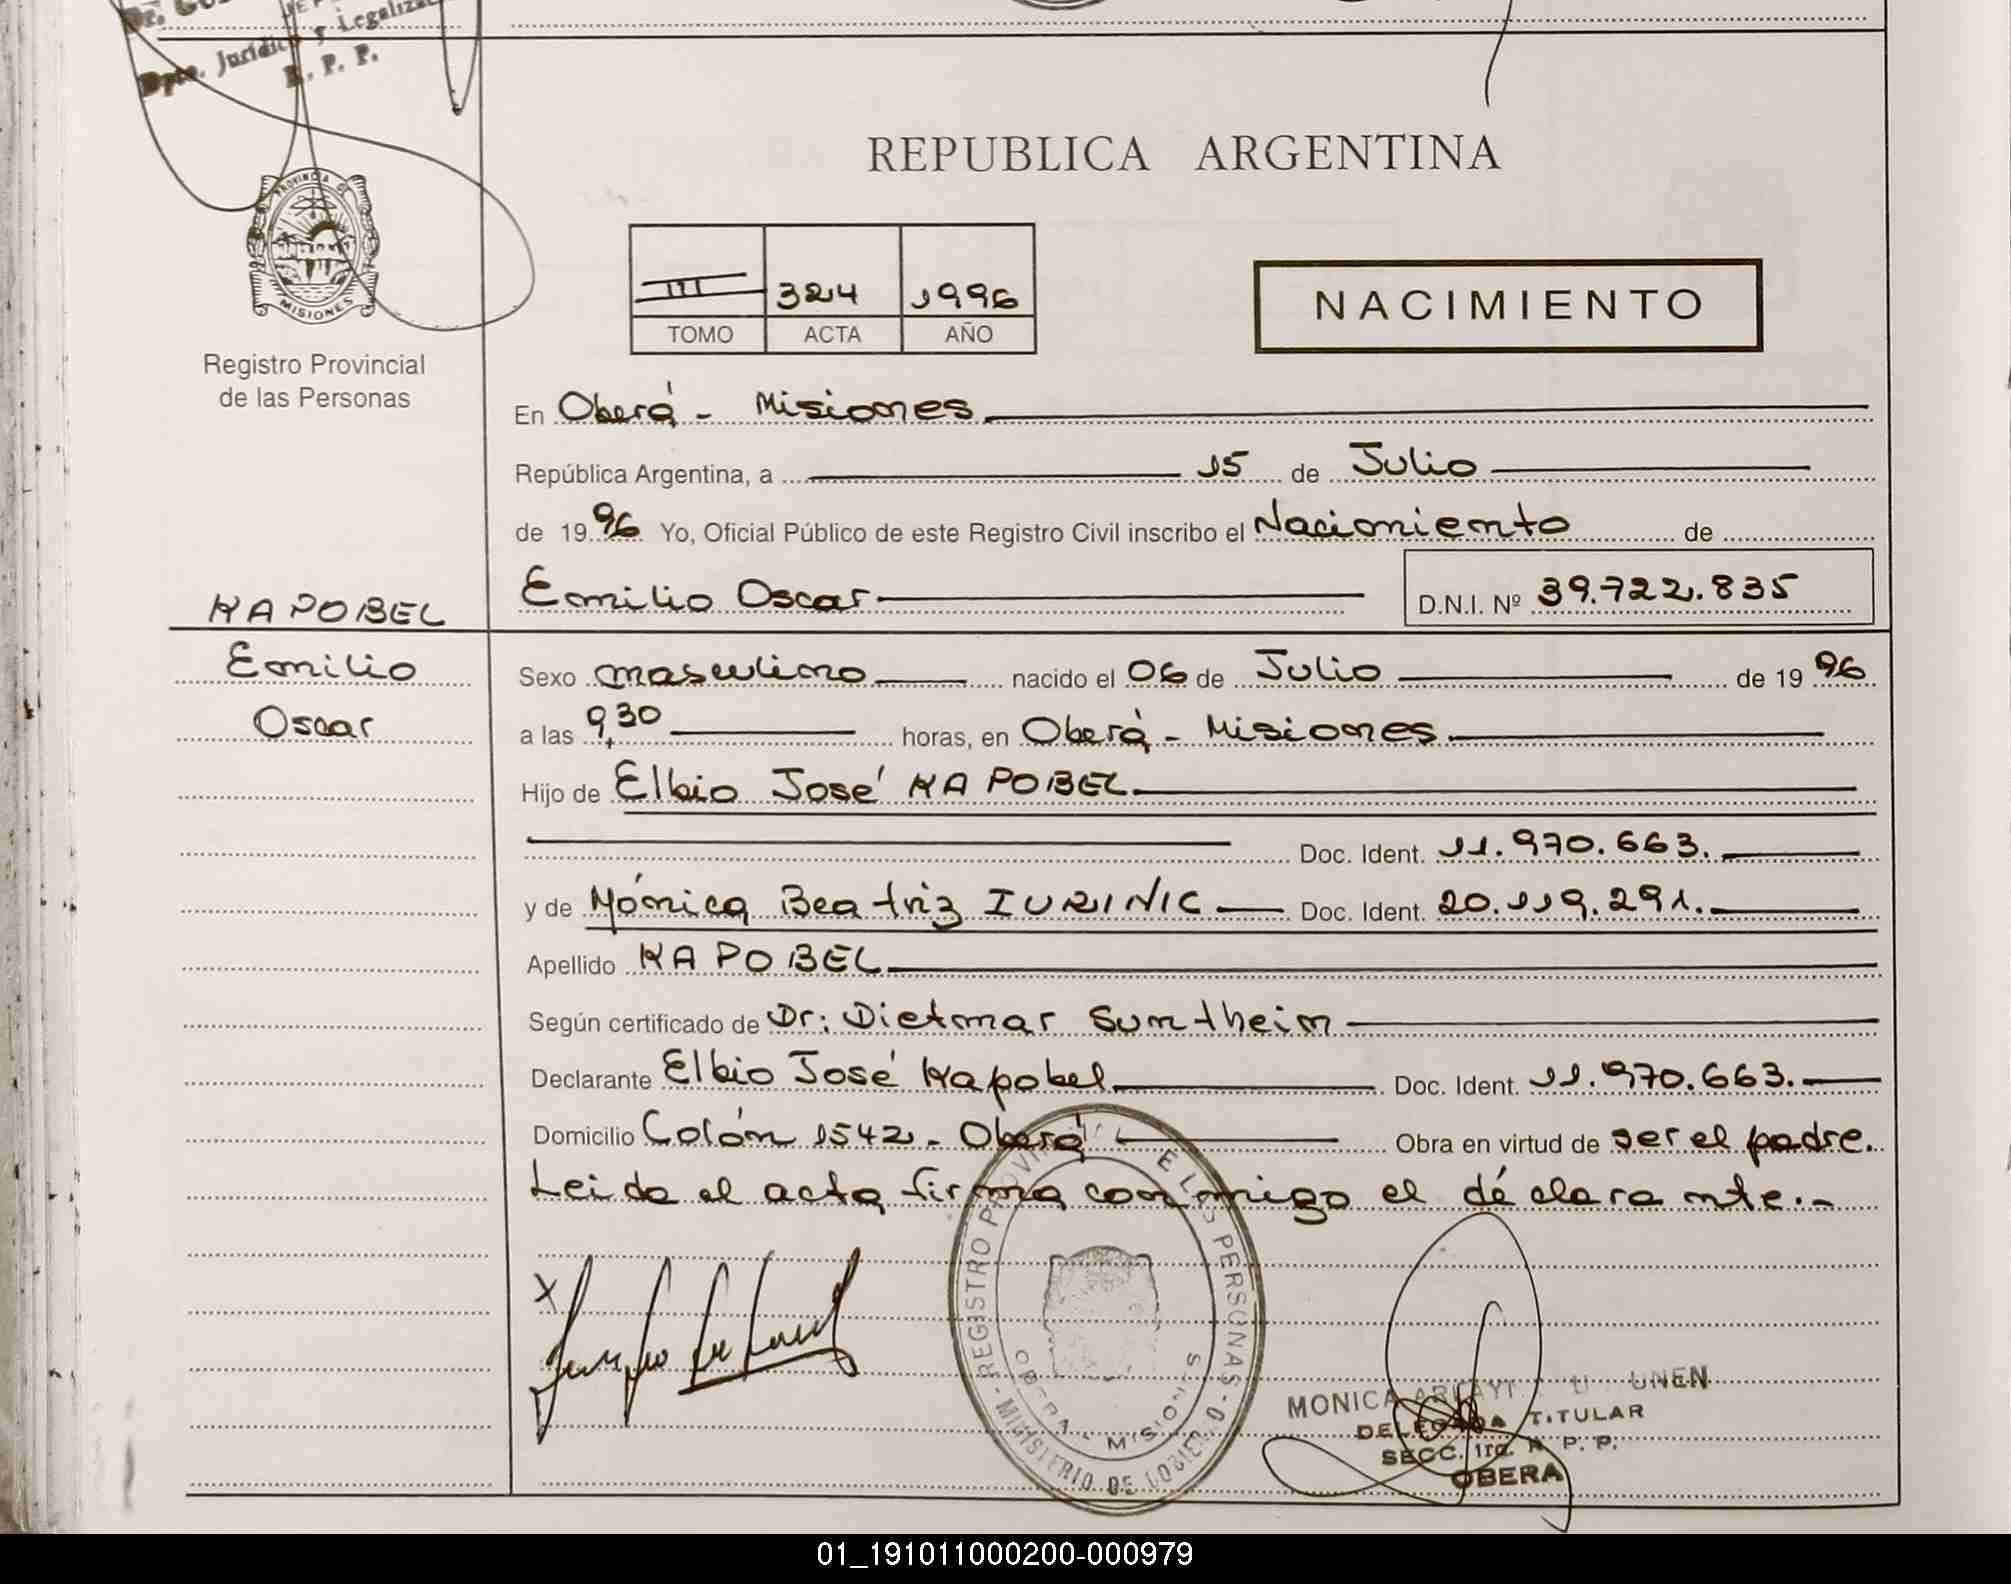 Dpto. Jurídico y Legaliza
R. P. P.
PROVINCIA DE
MISIONES
Registro Provincial
de las Personas
REPUBLICA ARGENTINA
III 324 1996
TOMO ACTA AÑO
NACIMIENTO
En Oberá - Misiones
República Argentina, a 15 de Julio
de 1996 Yo, Oficial Público de este Registro Civil inscribo el Nacimiento de
KAPOBEL
Emilio Oscar D.N.I. Nº 39.722.835
Emilio
Oscar
Sexo masculino nacido el 06 de Julio de 1996
a las 9,30 horas, en Oberá - Misiones
Hijo de Elbio José KAPOBEL
Doc. Ident. 11.970.663.
y de Mónica Beatriz IURINIC Doc. Ident. 20.119.291.
Apellido KAPOBEL
Según certificado de Dr: Dietmar Sumtheim
Declarante Elbio José Kapobel Doc. Ident. 11.970.663.
Domicilio Colón 1542 - Oberá Obra en virtud de ser el padre.
Leida el acta firma conmigo el declarante.-
X
REGISTRO PROVINCIAL DE LAS PERSONAS
MINISTERIO DE GOBIERNO
OBERA - MISIONES
MONICA
DELEGADA TITULAR
SECC. 1ra. R. P. P.
OBERA
01_191011000200-000979